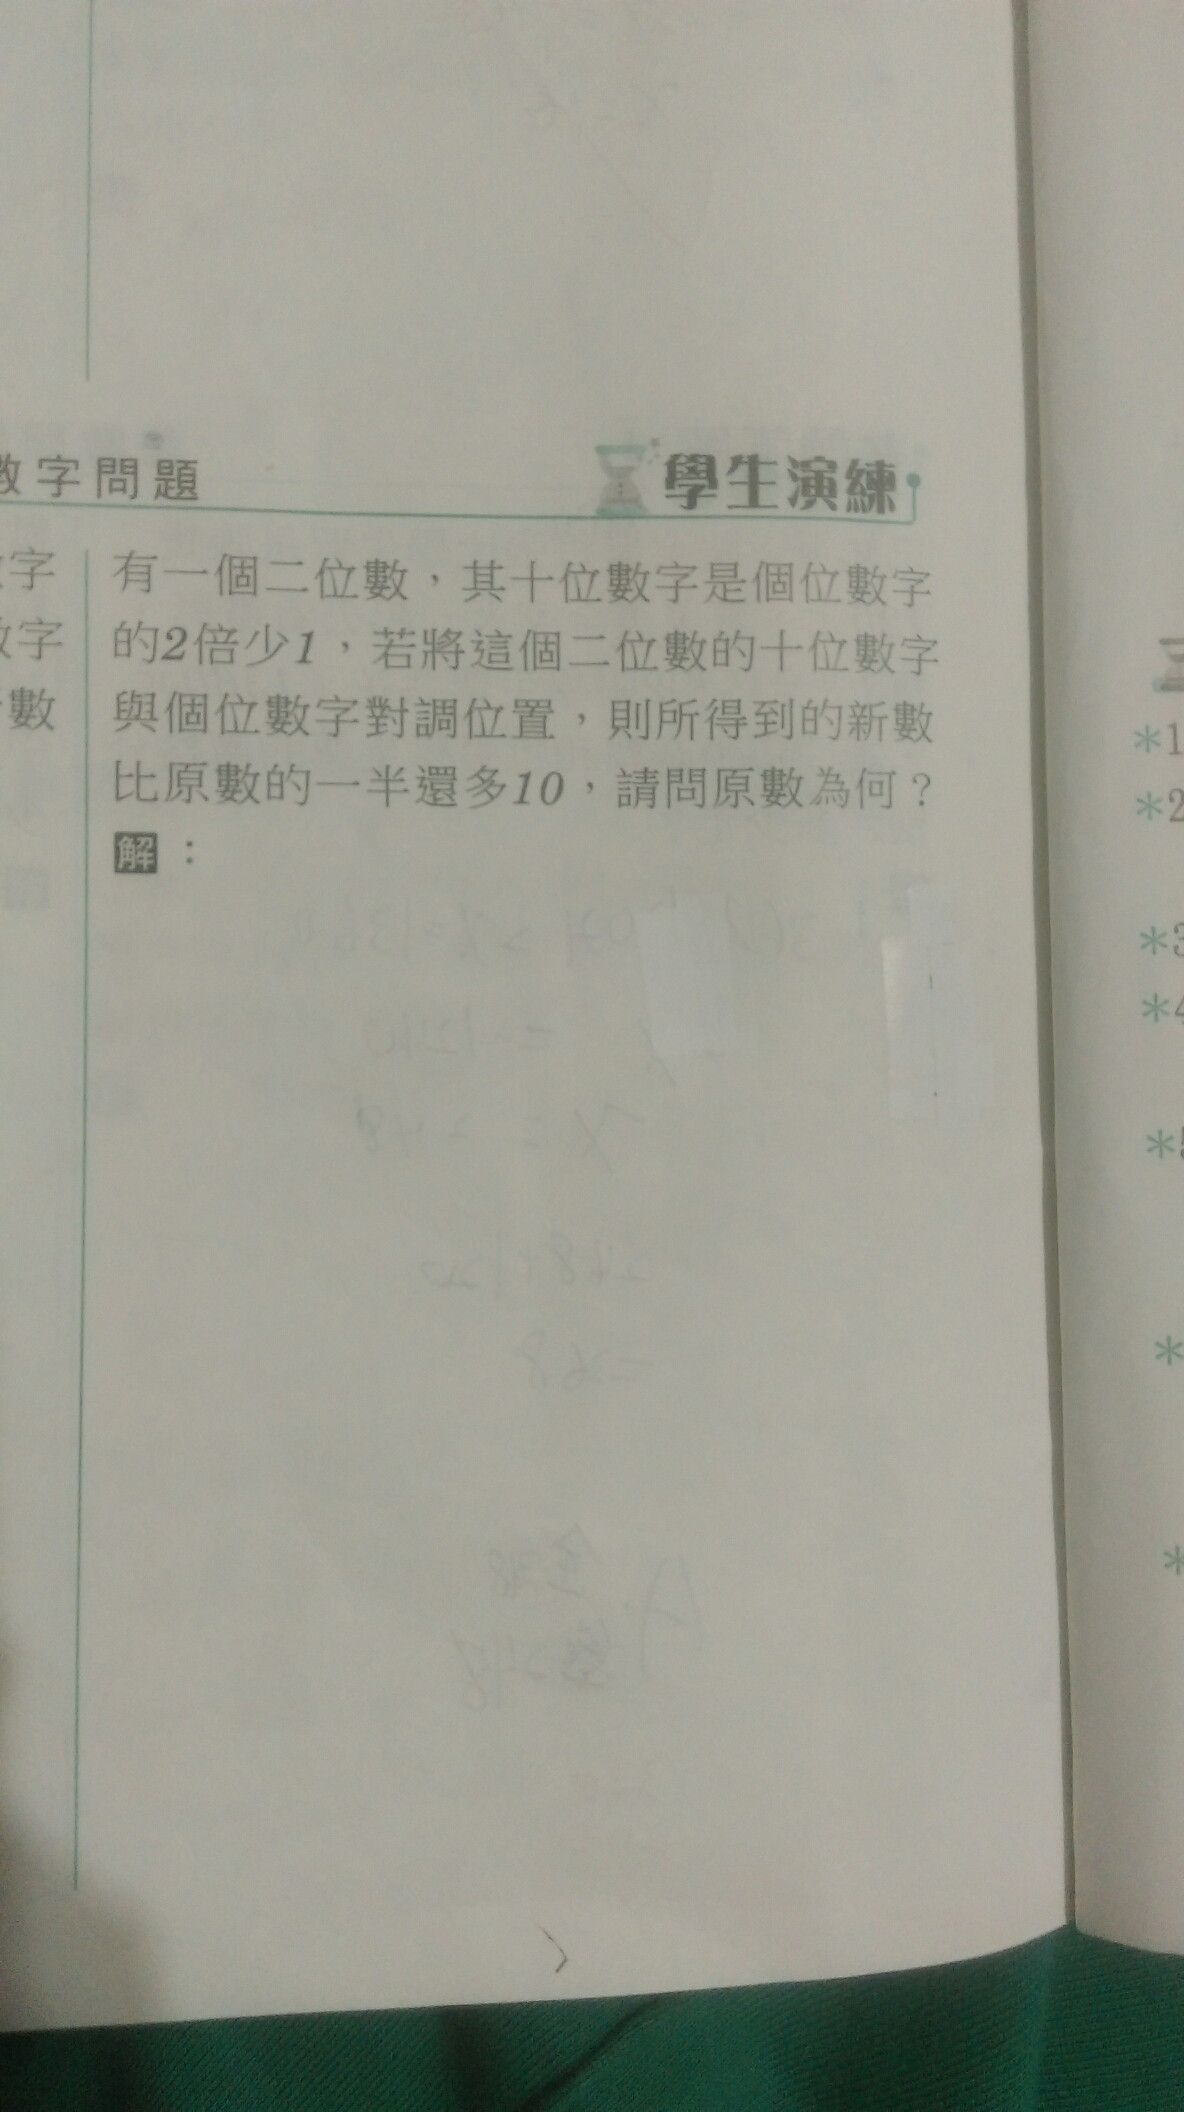 數字問題
學生演練
字
有一個二位數，其十位數字是個位數字
字
的2倍少1，若將這個二位數的十位數字
數
與個位數字對調位置，則所得到的新數
比原數的一半還多10，請問原數為何？
解：
*1
*2
*3
*4
*5
*
*